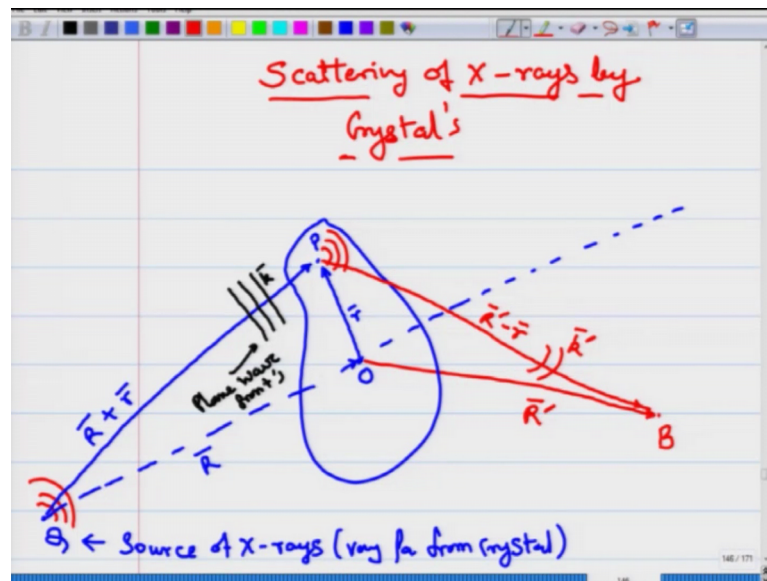 Scattering of X-rays by
Crystal's
P
k̄
r̄
R̄'-r̄
k̄'
Plane wave
front's
R̄ + r̄
O
R̄'
B
R̄
← Source of X-rays (very far from crystal)
146 / 171